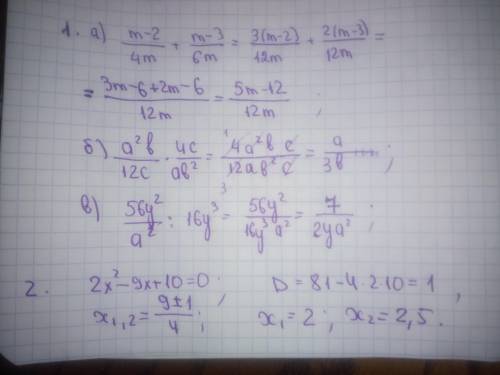 1. а) (m-2)/4m + (m-3)/6m = 3(m-2)/12m + 2(m-3)/12m =
= (3m-6+2m-6)/12m = (5m-12)/12m ;
б) a²b/12c · 4c/ab² = 4a²bc/12ab²c = a/3b ;
в) 56y²/a² : 16y³ = 56y²/16y³a² = 7/2ya² ;
2. 2x²-9x+10=0 ; D = 81-4·2·10 = 1 ,
x₁,₂ = (9±1)/4 ; x₁ = 2 ; x₂ = 2,5.